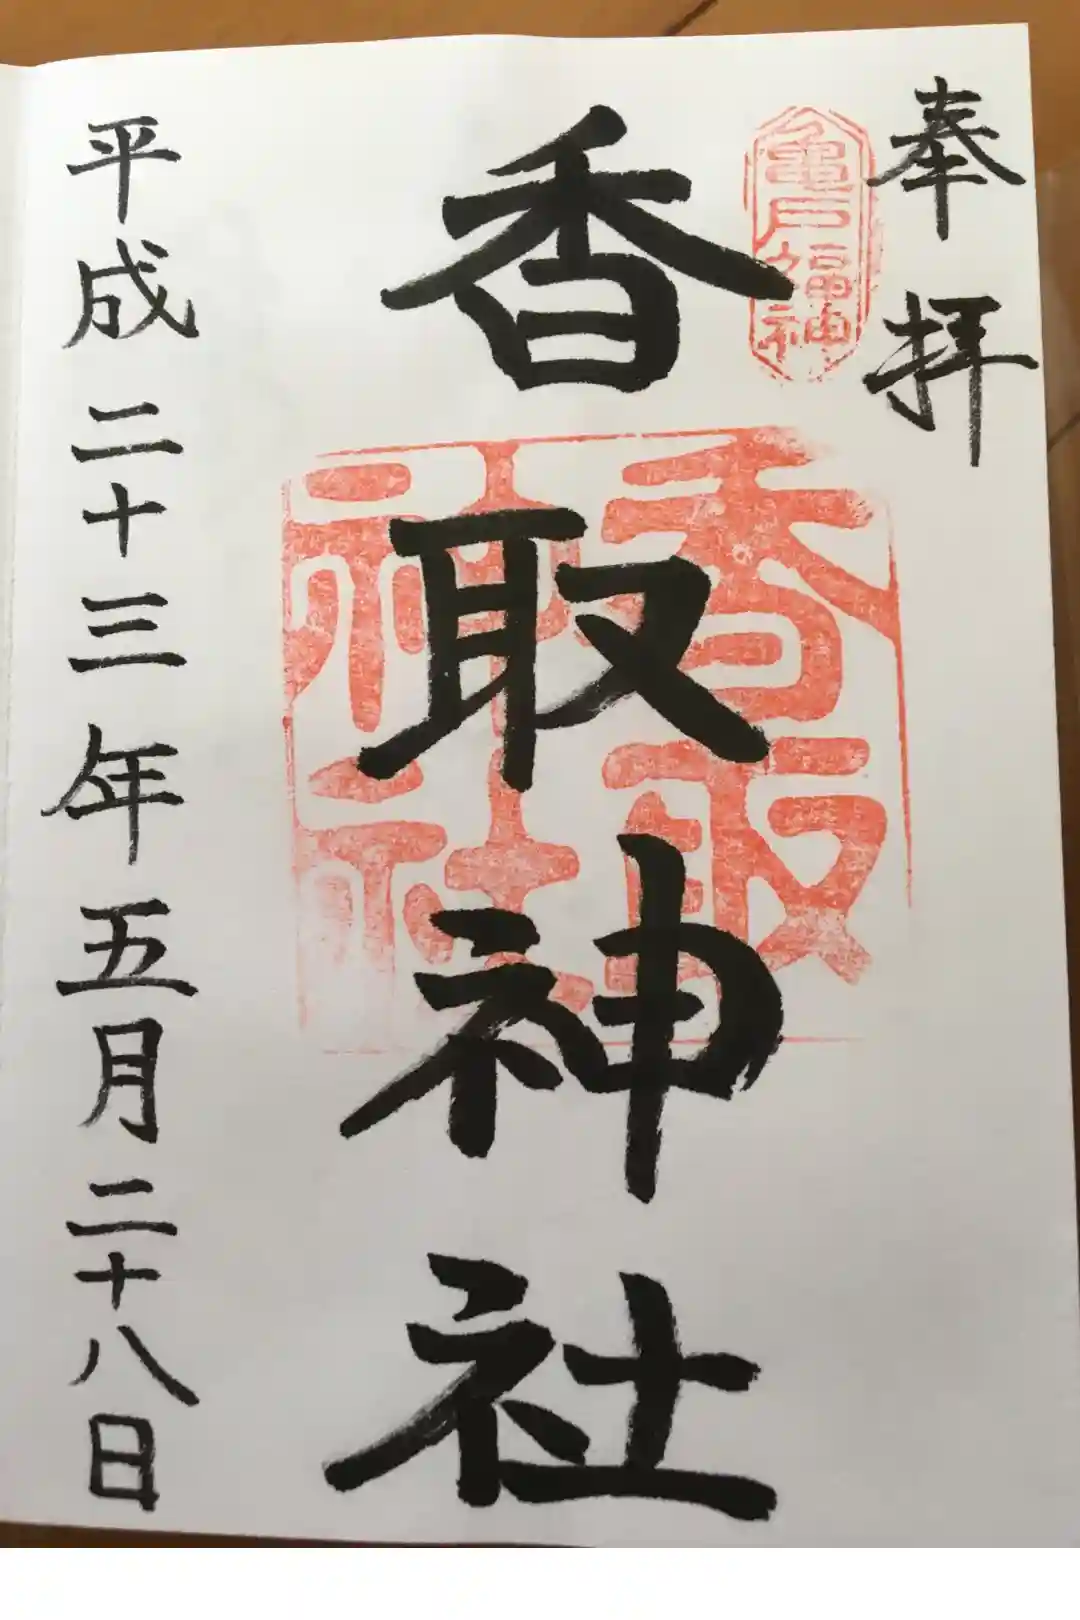 奉拝
亀戸福神
香取神社
香取神社
平成二十三年五月二十八日